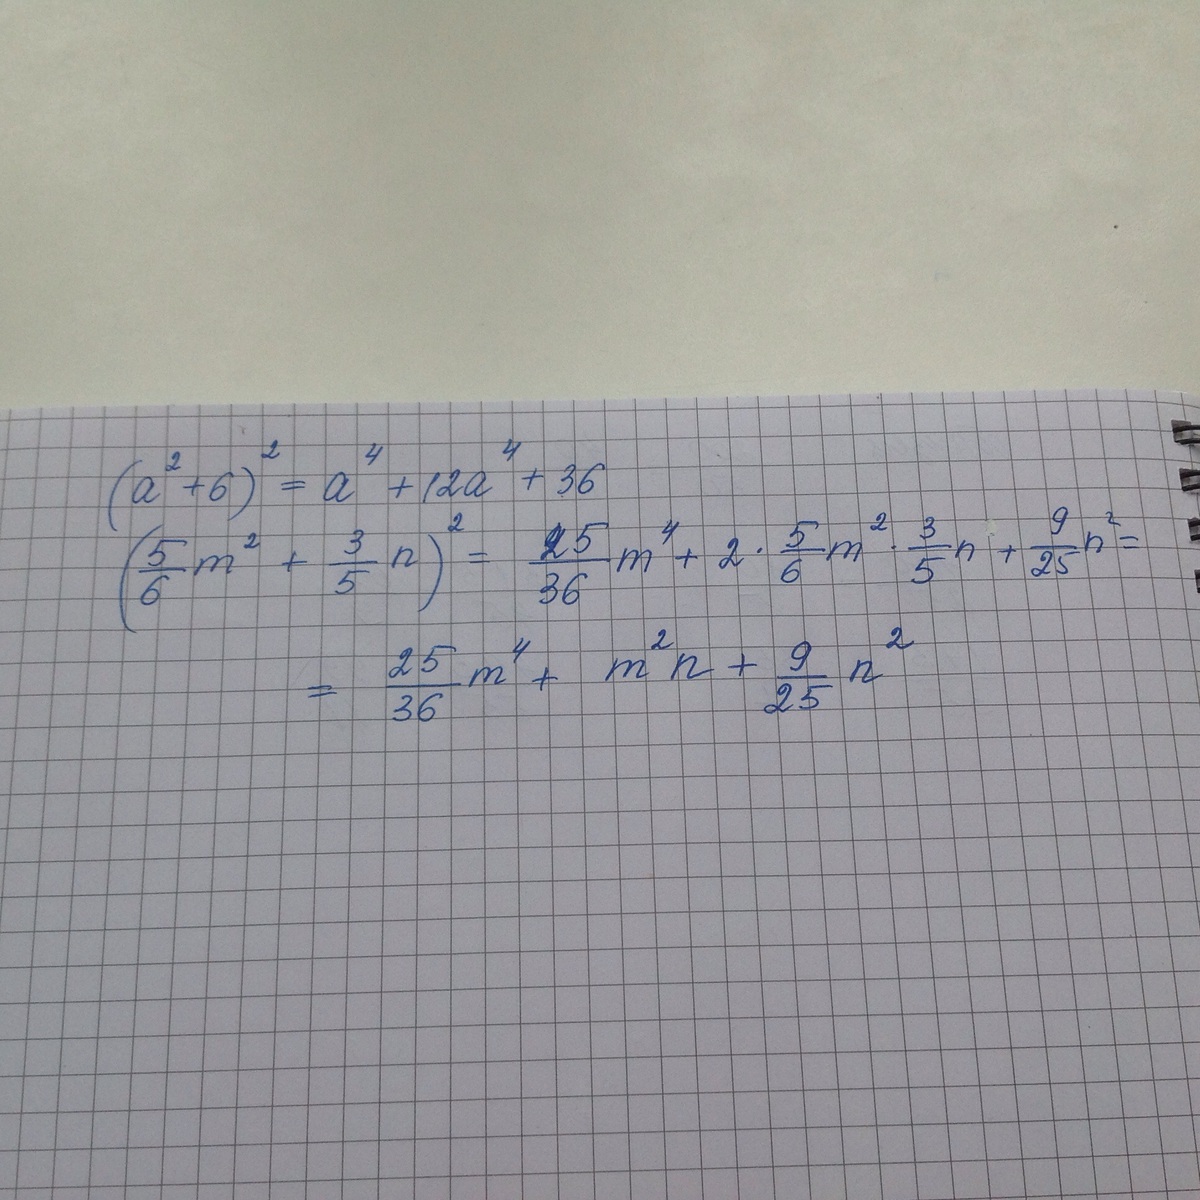 (a² + 6)² = a⁴ + 12a⁴ + 36
(5/6 m² + 3/5 n)² = 25/36 m⁴ + 2 · 5/6 m² · 3/5 n + 9/25 n² =
= 25/36 m⁴ + m²n + 9/25 n²